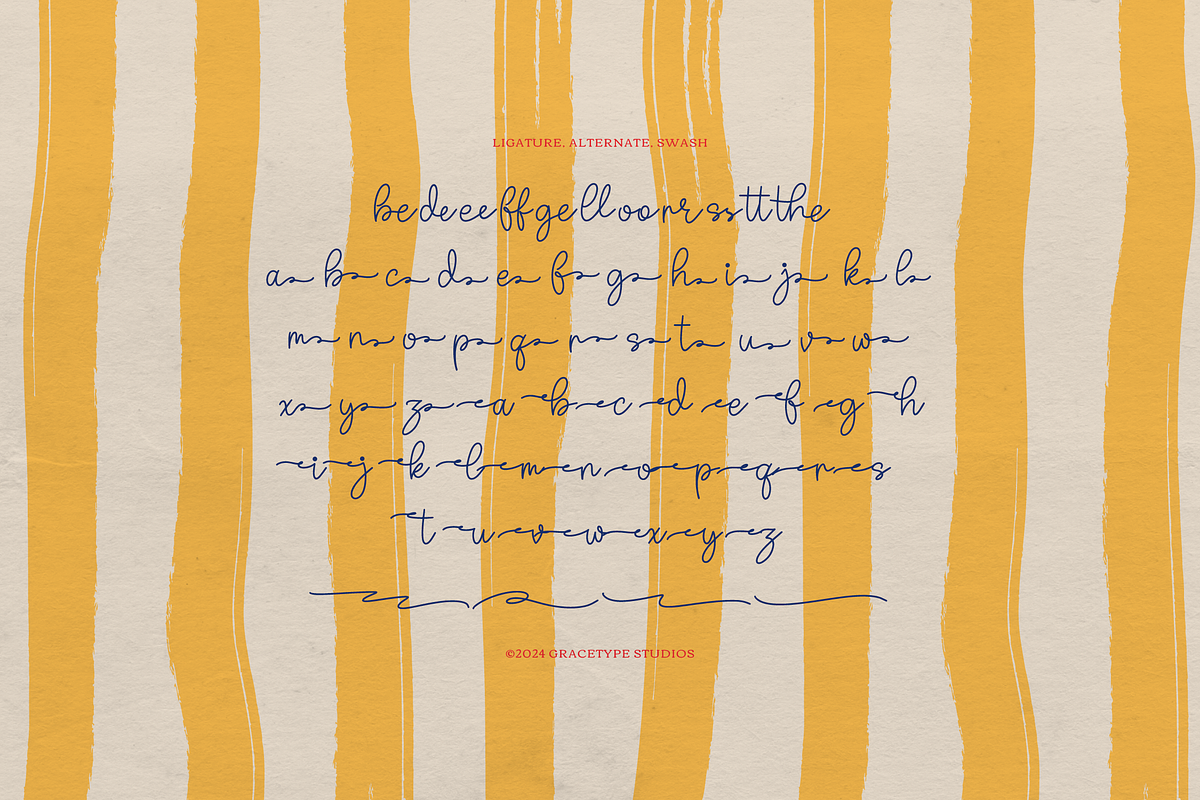 LIGATURE, ALTERNATE, SWASH
be de ee ff ge ll oo or r ss tt the
a b c d e f g h i j k l
m n o p q r s t u v w
x y z a b c d e f g h
i j k l m n o p q r s
t u v w x y z
©2024 GRACETYPE STUDIOS